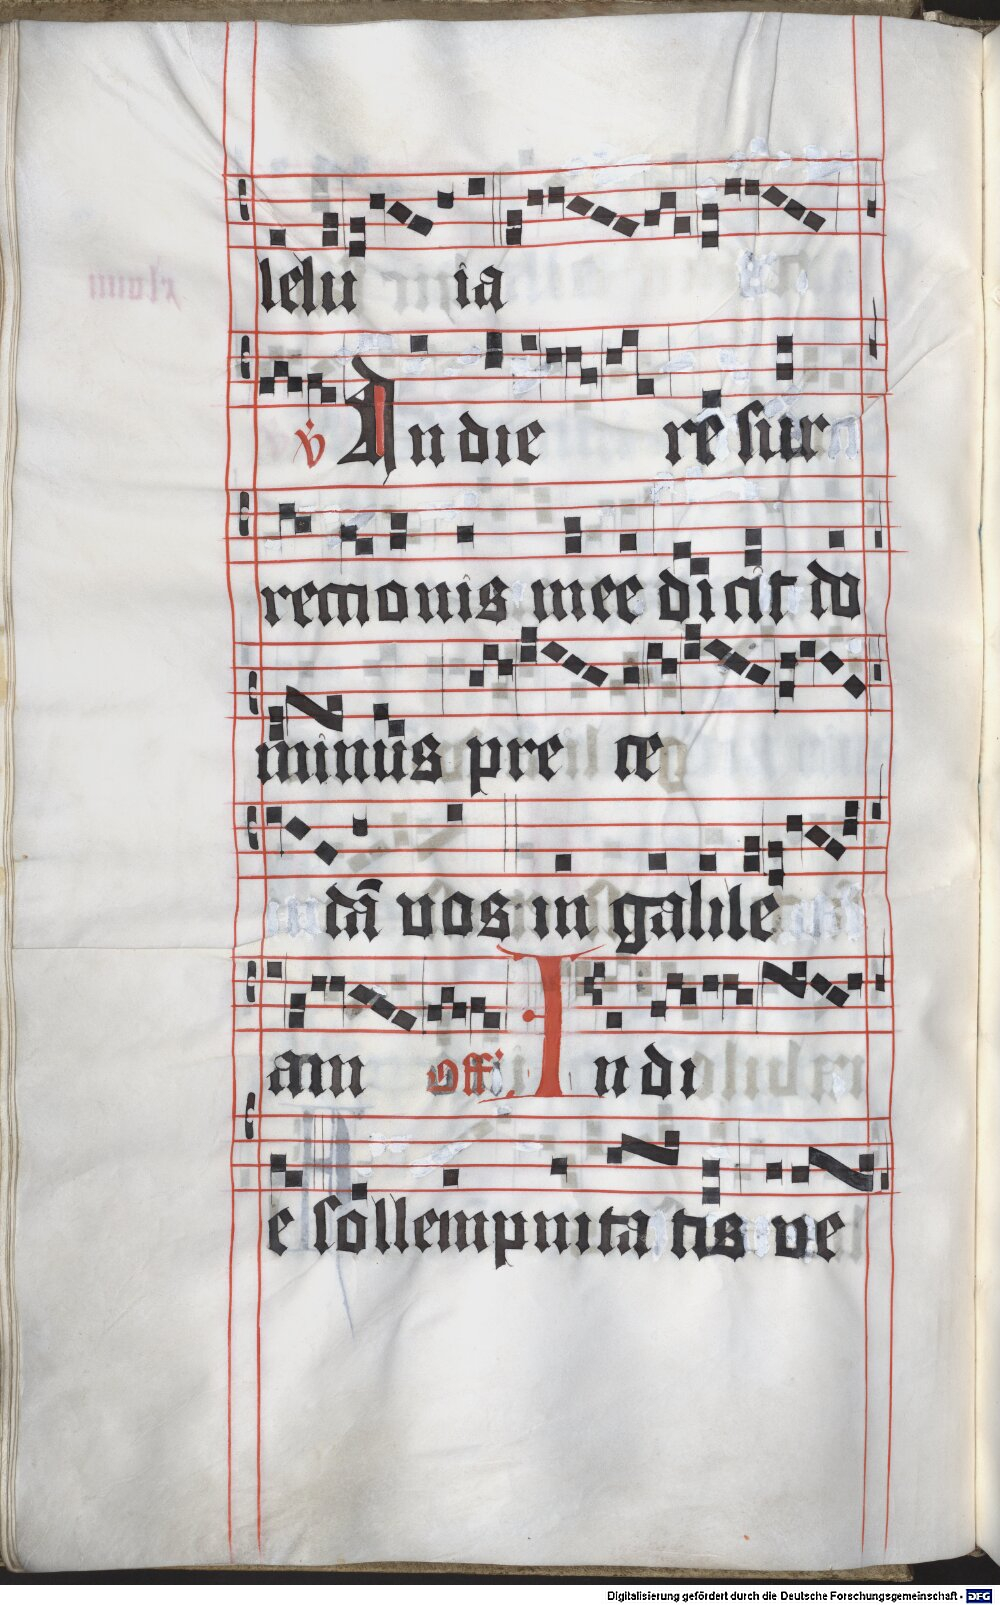 lelu ia
v̇ In die re sur
rectionis mee dicit do
minus pre ce
dā vos in galile
am off. In di
e sollempnita tis ve
Digitalisierung gefördert durch die Deutsche Forschungsgemeinschaft - DFG